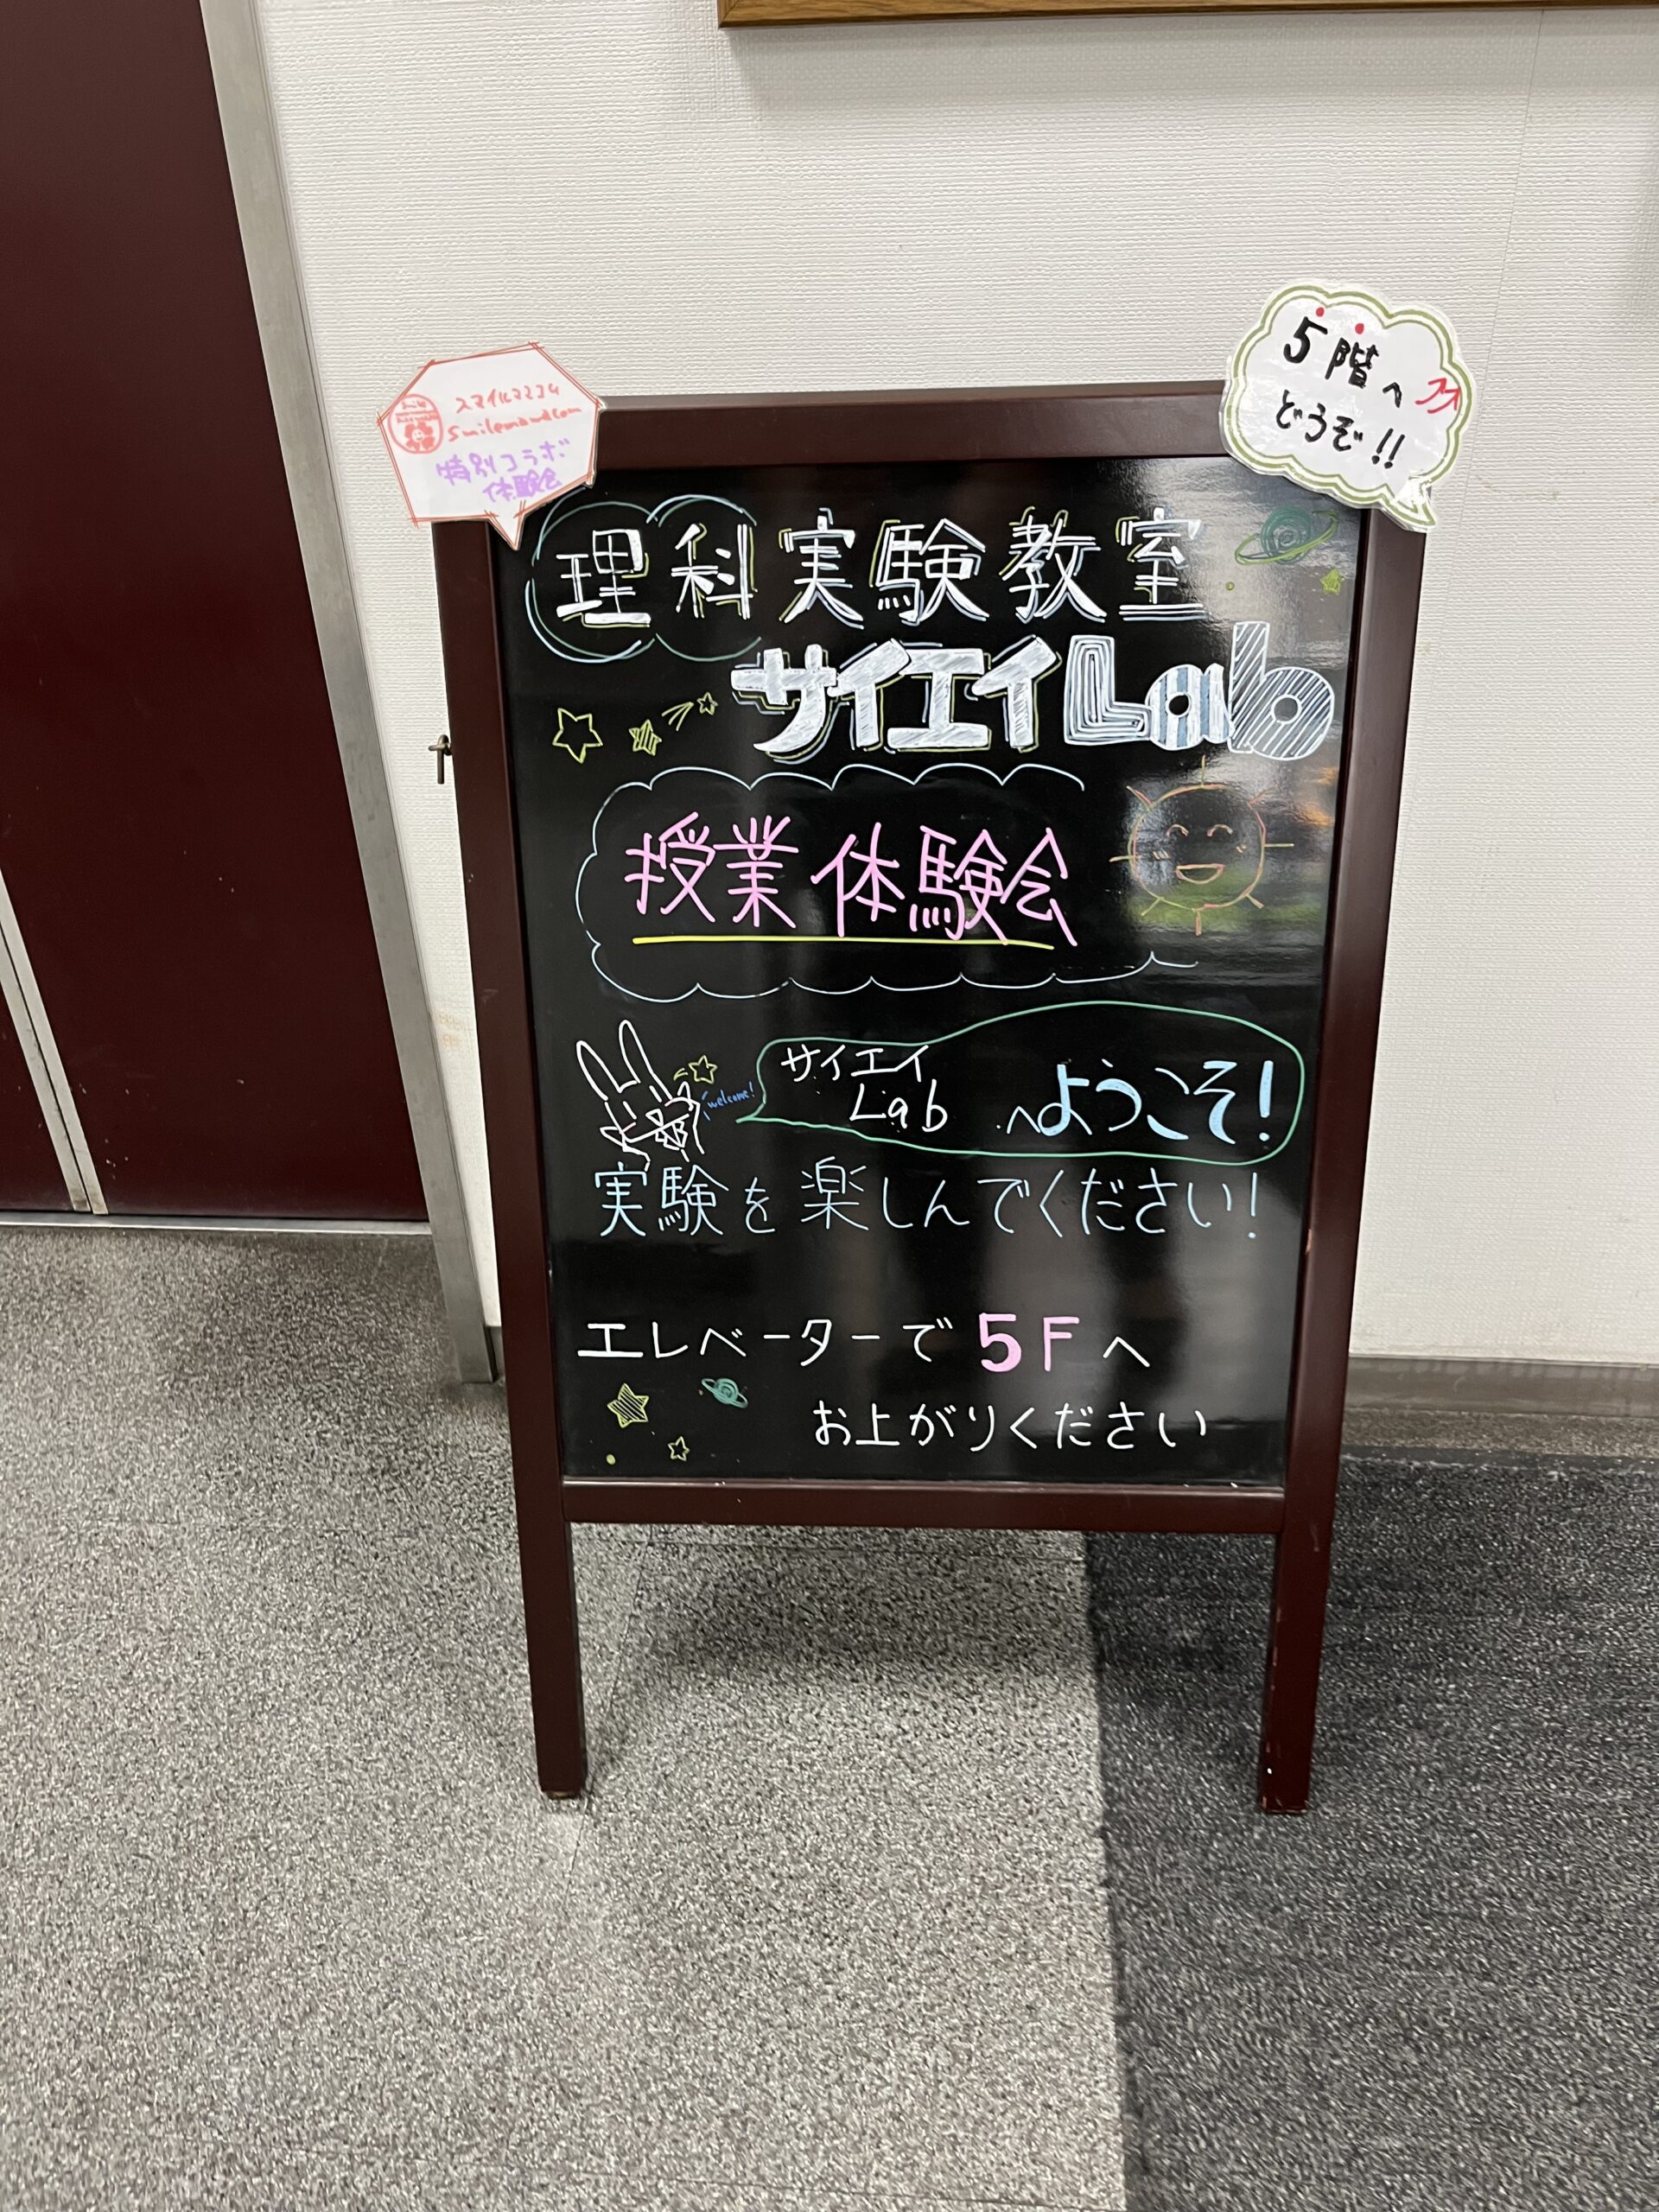 スマイルママコム
特別コラボ
体験会
5階へ
どうぞ!!
理科実験教室
サイエイLab
授業体験会
welcome!
サイエイ
Lab
へようこそ!
実験を楽しんでください!
エレベーターで5Fへ
お上がりください